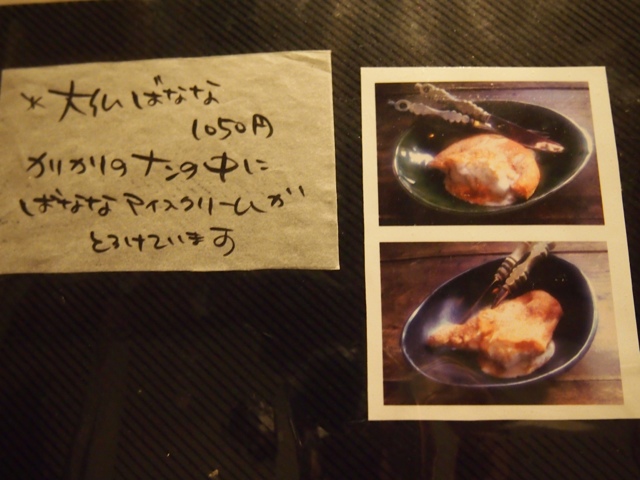 * 大仏ばなな
1050円
カリカリのナンの中に
ばななアイスクリームが
とろけています